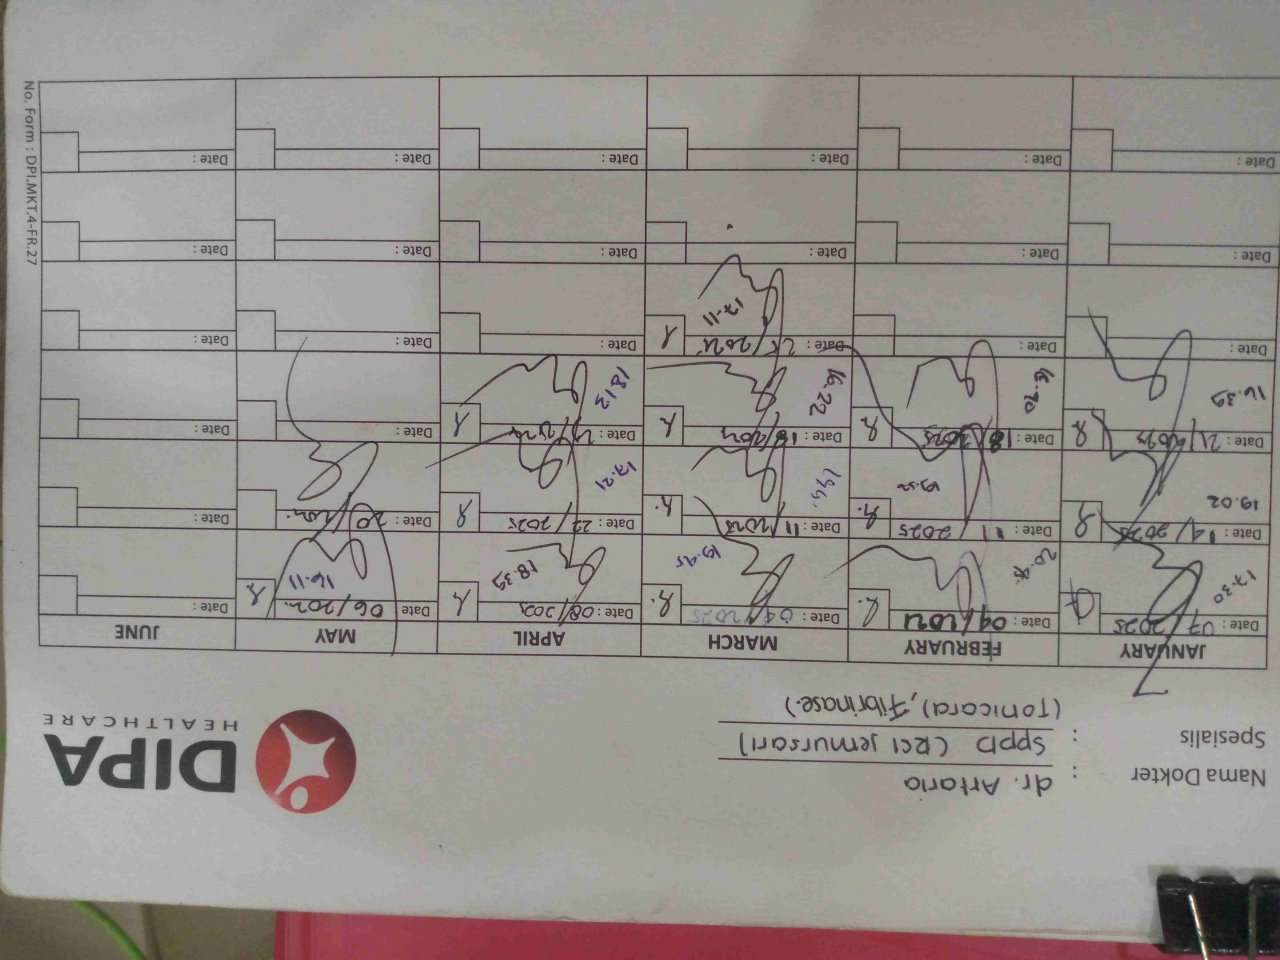 Nama Dokter : dr. Artaria
Spesialis : SppD (RSI jemursari)
(Tonicard, Fibrinase.)
DIPA
HEALTHCARE
JANUARY FEBRUARY MARCH APRIL MAY JUNE
Date : 07 2025 Date : 04/202 Date : 04/2025 Date : 08/202 Date 06/202 Date :
17.30 20.45 19.45 18.39 16.11
Date : 14/2025 Date : 11/2025 Date : 11/2025 Date : 22/2025 Date : 20/202 Date :
19.02 19.52 17.21
Date : 21/2025 Date : 18/2025 Date : 18/202 Date : Date : Date :
16.39 16.22 1813
Date : Date : Date : 25/202 Date : Date : Date :
17.11
Date : Date : Date : Date : Date : Date :
Date : Date : Date : Date : Date : Date :
No. Form : DPI.MKT.4-FR.27